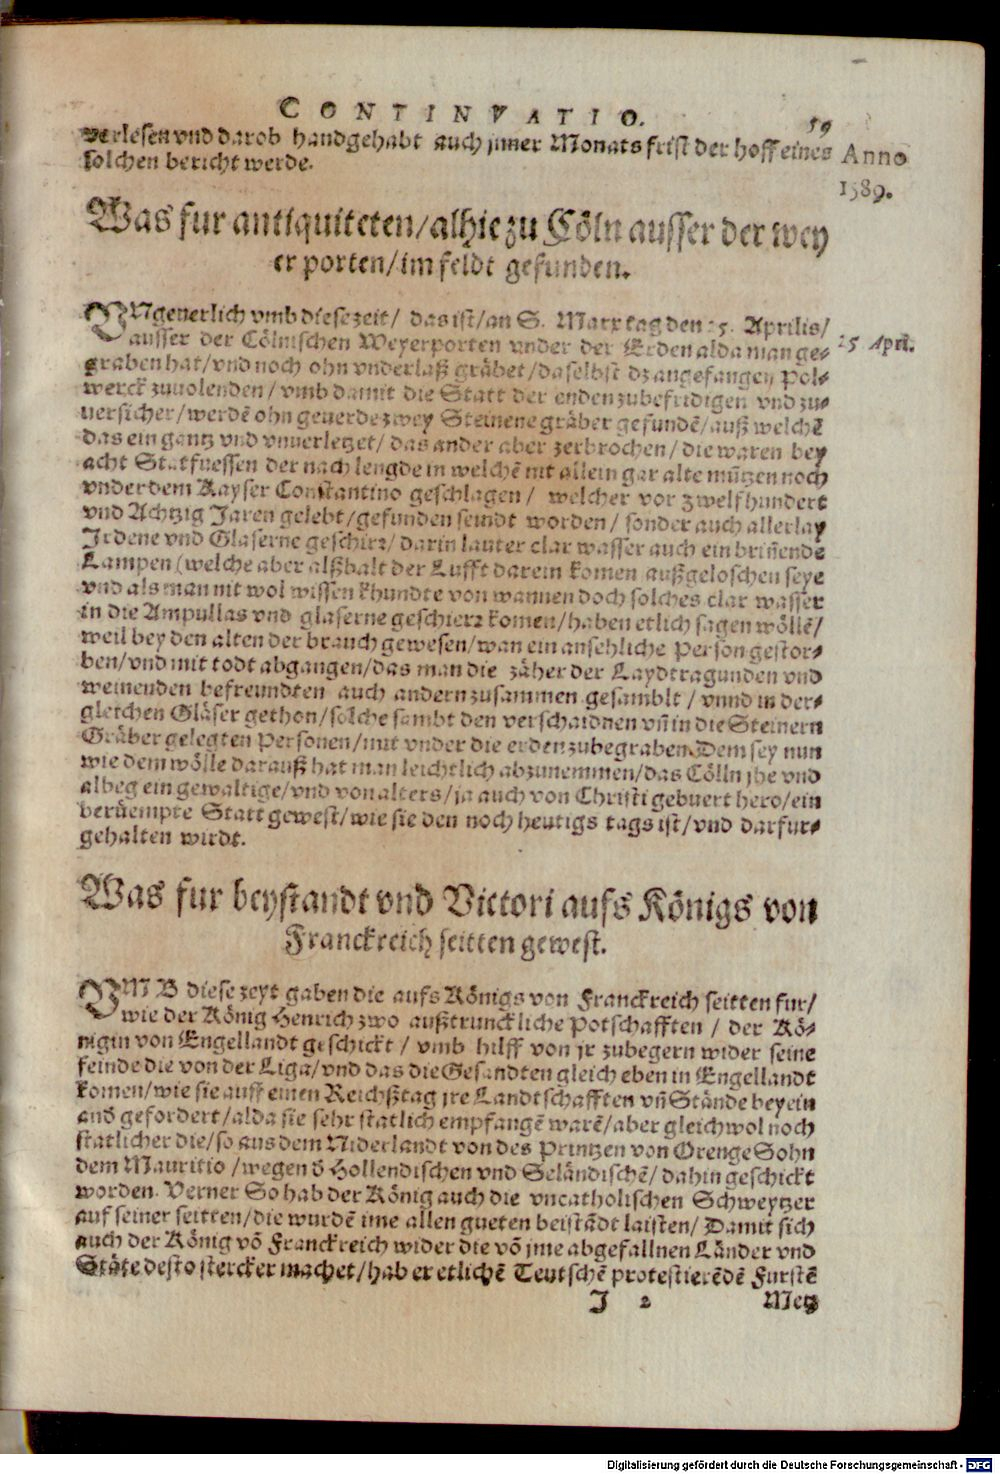 CONTINVATIO.
59
verlesen vnd darob handgehabt auch jnner Monats frist der hoff eines
solchen bericht werde.
Anno
1589.
Was fur antiquiteten/alhie zu Cöln ausser der wey
er porten/im feldt gefunden.
VNgeuerlich vmb diese zeit/ das ist/an S. Marx tag den 25. Aprilis/
25 April.
ausser der Cölnischen Weyerporten vnder der Erden alda man ge-
graben hat/vnd noch ohn vnderlaß gräbet/daselbst dz angefangen Pol-
werck zuuolenden/vmb damit die Statt der enden zubefridigen vnd zu-
uersicher/werdē ohn geuerde zwey Steinene gräber gefundē/auß welchē
das ein gantz vnd vnuerletzet/das ander aber zerbrochen/die waren bey
acht Statfuessen der nach lengde in welchē nit allein gar alte mūtzen noch
vnder dem Kayser Constantino geschlagen/ welcher vor zwelfhundert
vnd Achtzig Jaren gelebt/gefunden seindt worden/ sonder auch allerlay
Irdene vnd Glaserne geschirz/darin lauter clar wasser auch ein briñende
Lampen (welche aber alßbalt der Lufft darein komen außgeloschen seye
vnd als man nit wol wissen khundte von wannen doch solches clar wasser
in die Ampullas vnd glaserne geschierz komen/haben etlich sagen wöllē/
weil bey den alten der brauch gewesen/wan ein ansehliche Person gestor-
ben/vnd mit todt abgangen/das man die zäher der Laydtragunden vnd
weinenden befreundten auch andern zusammen gesamblt/ vnnd in der-
gleichen Gläser gethon/solche sambt den verschaidnen vñ in die Steinern
Gräber gelegten Personen/mit vnder die erden zubegraben. Dem sey nun
wie dem wölle darauß hat man leichtlich abzunemmen/das Cölln jhe vnd
albeg ein gewaltige/vnd von alters/ja auch von Christi gebuert hero/ein
berüempte Statt gewest/wie sie den noch heutigs tags ist/vnd darfur-
gehalten wirdt.
Was fur beystandt vnd Victori aufs Königs von
Franckreich seitten gewest.
VMB diese zeyt gaben die aufs Königs von Franckreich seitten fur/
wie der König Henrich zwo außtrunckliche Potschafften/ der Kö-
nigin von Engellandt geschickt/ vmb hilff von jr zubegern wider seine
feinde die von der Liga/vnd das die Gesandten gleich eben in Engellandt
komen/wie sie auff einen Reichßtag jre Landtschafften vñ Stände bey ein
and̄ gefordert/alda sie sehr statlich empfangē warē/aber gleichwol noch
statlicher die/so aus dem Niderlandt von des Printzen von Orenge Sohn
dem Mauritio/wegen d̄ Hollendischen vnd Seländischē/dahin geschickt
worden. Verner So hab der König auch die vncatholischen Schweytzer
auf seiner seitten/die wurdē ime allen gueten beistādt laisten/ Damit sich
auch der König vō Franckreich wider die vō jme abgefallnen Länder vnd
Stäte desto stercker machet/hab er etlichē Teutschē protestierēdē Furstē
J 2
Metz
Digitalisierung gefördert durch die Deutsche Forschungsgemeinschaft - DFG